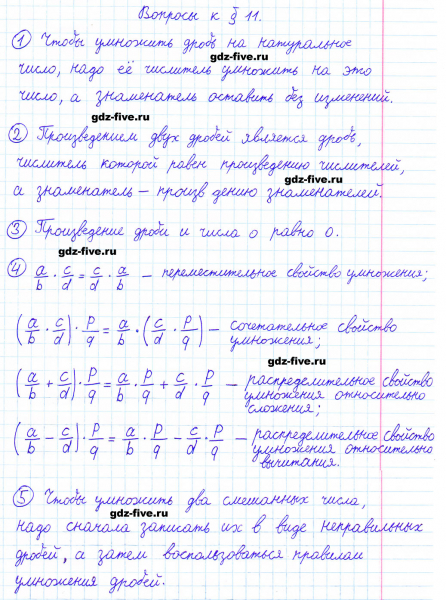 Вопросы к § 11.
① Чтобы умножить дробь на натуральное
gdz-five.ru
число, надо её числитель умножить на это
число, а знаменатель оставить без изменений.
gdz-five.ru
② Произведением двух дробей является дробь,
числитель которой равен произведению числителей,
gdz-five.ru
а знаменатель – произв дению знаменателей.
③ Произведение дроби и числа 0 равно 0.
gdz-five.ru
④ a/b · c/d = c/d · a/b – переместительное свойство умножения;
(a/b · c/d) · p/q = a/b · (c/d · p/q) – сочетательное свойство
умножения;
gdz-five.ru
(a/b + c/d) · p/q = a/b · p/q + c/d · p/q – распределительное свойство
умножения относительно
сложения;
(a/b – c/d) · p/q = a/b · p/q – c/d · p/q – распределительное свойство
умножения относительно
вычитания.
gdz-five.ru
⑤ Чтобы умножить два смешанных числа,
gdz-five.ru
надо сначала записать их в виде неправильных
дробей, а затем воспользоваться правилом
умножения дробей.